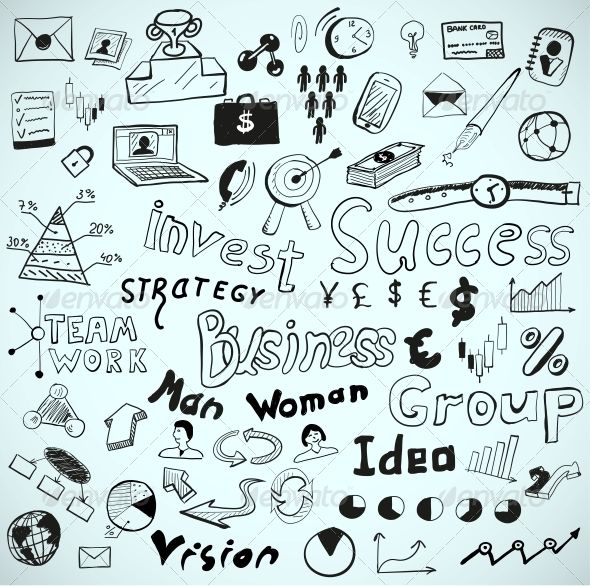 BANK CARD
$
$
7%
3%
20%
30%
40%
invest
Success
STRATEGY
¥ £ $ € $
TEAM
WORK
Business
€
%
Man
Woman
Group
Idea
%
Vision
envato